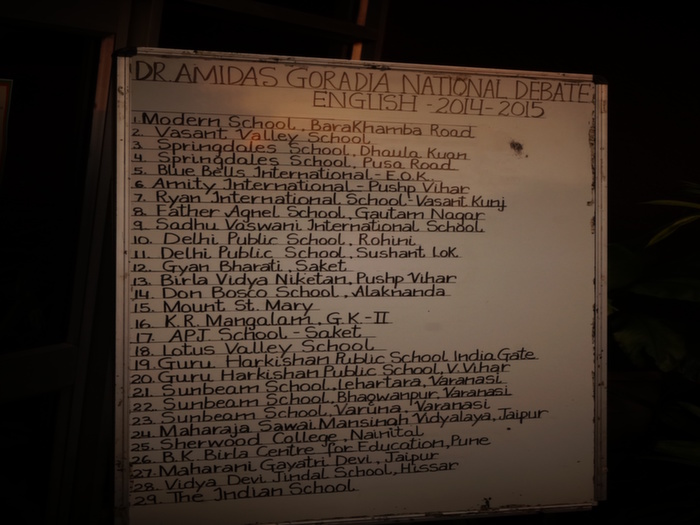 DR. AMIDAS GORADIA NATIONAL DEBATE
ENGLISH - 2014-2015
1. Modern School, Barakhamba Road
2. Vasant Valley School
3. Springdales School, Dhaula Kuan
4. Springdales School, Pusa Road
5. Blue Bells International - E.O.K.
6. Amity International - Pushp Vihar
7. Ryan International School - Vasant Kunj
8. Father Agnel School, Gautam Nagar
9. Sadhu Vaswani International School
10. Delhi Public School, Rohini
11. Delhi Public School, Sushant Lok
12. Gyan Bharati, Saket
13. Birla Vidya Niketan, Pushp Vihar
14. Don Bosco School, Alaknanda
15. Mount St. Mary
16. K.R. Mangalam, G.K-II
17. APJ School - Saket
18. Lotus Valley School
19. Guru Harkishan Public School India Gate
20. Guru Harkishan Public School, V. Vihar
21. Sunbeam School, Lehartara, Varanasi
22. Sunbeam School, Bhagwanpur, Varanasi
23. Sunbeam School, Varuna, Varanasi
24. Maharaja Sawai Mansingh Vidyalaya, Jaipur
25. Sherwood College, Nainital
26. B.K. Birla Centre for Education, Pune
27. Maharani Gayatri Devi, Jaipur
28. Vidya Devi Jindal School, Hissar
29. The Indian School